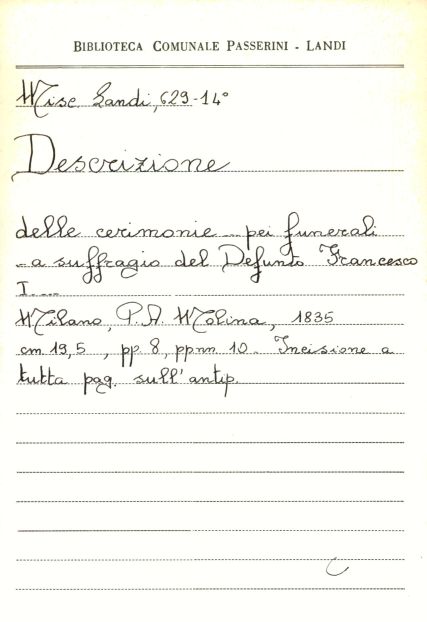 BIBLIOTECA COMUNALE PASSERINI - LANDI
Misc. Landi, 629-14°
Descrizione
delle cerimonie ... pei funerali
... a suffragio del Defunto Francesco
I. ...
Milano, P. A. Molina, 1835
cm 19,5, pp. 8, pp nn 10. Incisione a
tutta pag. sull'antip.